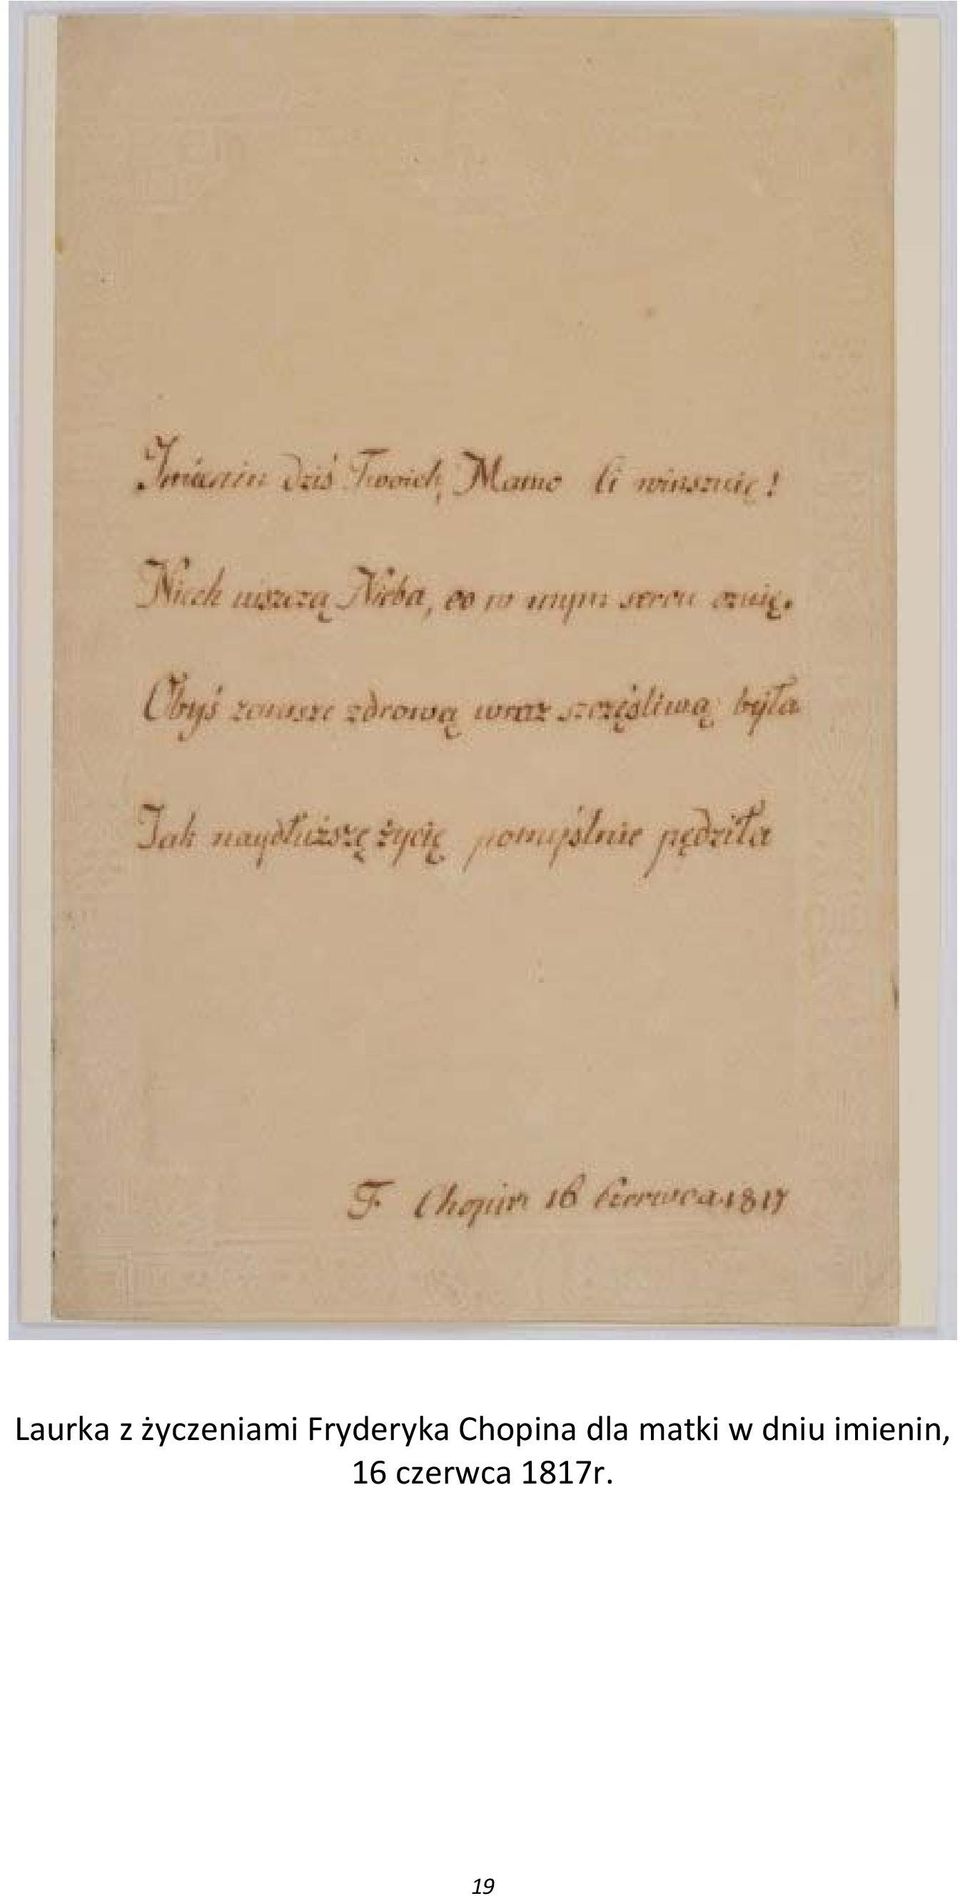 Imienin dziś Twoich, Mamo Ci winszuię!
Niech uiszczą Nieba, co w mym sercu czuię.
Obyś zawsze zdrową wraz szczęśliwą była
Jak naydłuższę życię pomyślnie pędziła
F. Chopin 16 Czerwca 1817
Laurka z życzeniami Fryderyka Chopina dla matki w dniu imienin,
16 czerwca 1817r.
19